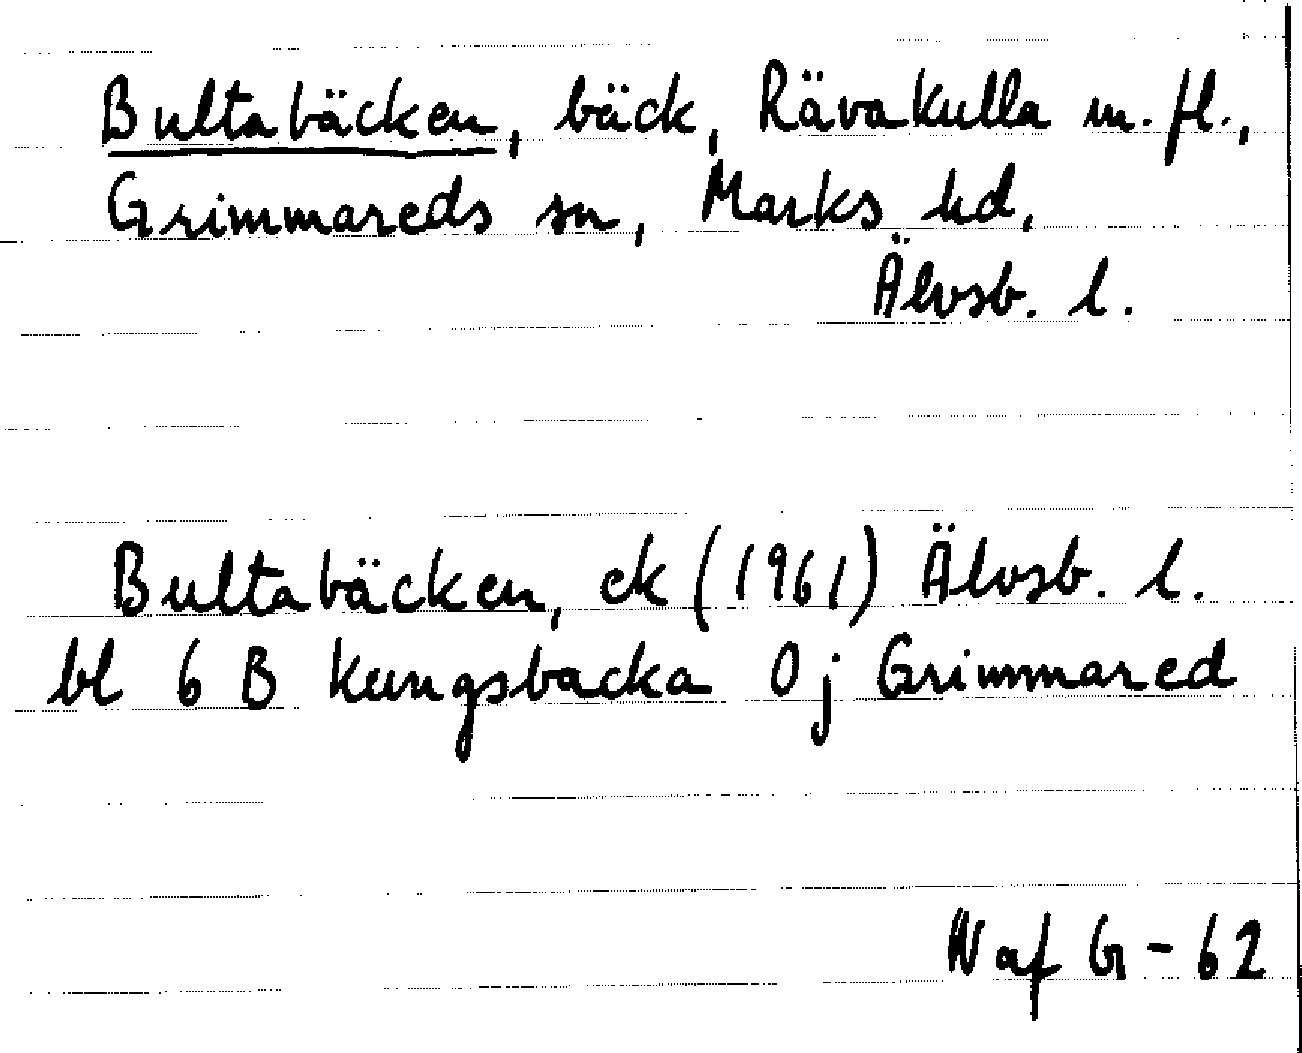 Bultabäcken, bäck, Rävakulla m. fl.,
Grimmareds sn, Marks hd,
Älvsb. l.
Bultabäcken, ek (1961) Älvsb. l.
bl 6 B Kungsbacka 0 j Grimmared
N af G-62